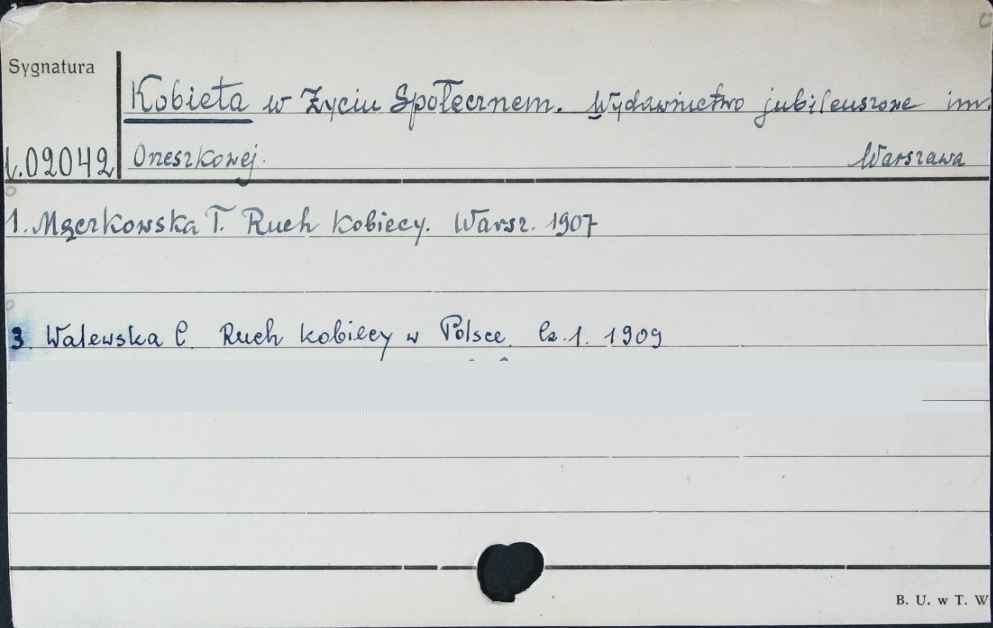 Sygnatura
Kobieta w Życiu Społecznem. Wydawnictwo jubileuszowe im.
02042 Orzeszkowej. Warszawa
1. Męczkowska T. Ruch kobiecy. Warsz. 1907
3. Walewska C. Ruch kobiecy w Polsce. Cz. 1. 1909
B. U. w T. W